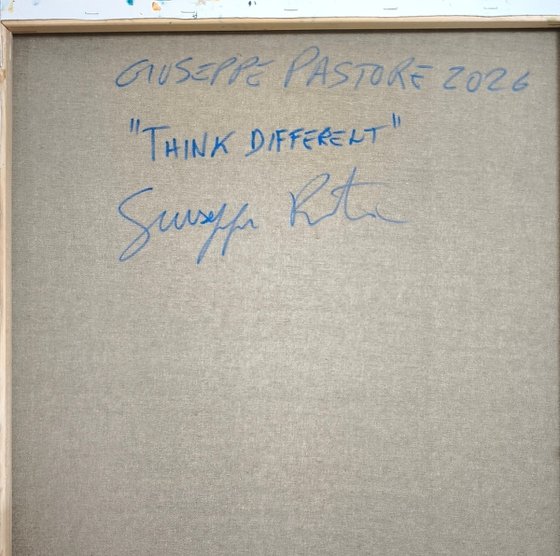 GIUSEPPE PASTORE 2026
"THINK DIFFERENT"
Giuseppe Pastore